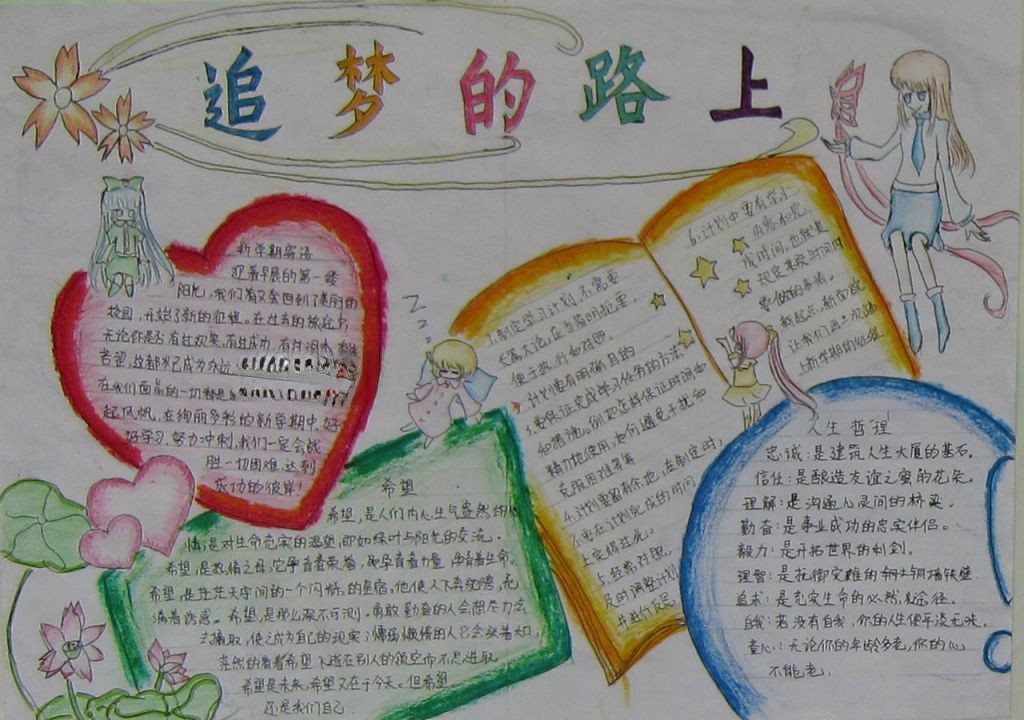 追梦的路上
新学期寄语
迎着早晨的第一缕
阳光,我们有又会回到了美丽的
校园,开始了新的征程。在过去的旅途中,
无论你是否有过欢笑,有过成功,有过泪水
苦涩,这都将已成为永远
在我们面前的一切都是
起风帆,在绚丽多彩的新学期中,好
好学习,努力冲刺,我们一定会战
胜一切困难,达到
成功的彼岸!
希望
希望,是人们内心生气盎然的
情,是对生命充实的渴望,即如绿叶与阳光的交流。
希望,是热情之母,它孕育着荣誉,孕育着力量,孕育着生命。
希望,是茫茫天宇间的一个闪标的星宿,他使人下弃
满着诱惑。希望,是那么深不可测。勇敢勤奋的人会想尽力法
去摘取,使之成为自己的现实;懦弱懒惰的人只会
茫然的看着希望下
希望是未来,希望又在于今天。但希望
还是我们自己
1.制定学习计划,不需要
长篇大论,应当简明扼要,
便于执行和对照。
2.计划要有明确目的
3.要保证完成学习任务的方法
和措施。例如怎样保证时间和
精力地使用,如何避免干扰和
克服困难等等
4.计划要留有余地,在制定时,
不要在计划完成的时间
上定得过死。
5.经常对照,
及时调整计划
并进行反思
6.计划中要有学习
内容和完
成时间,也就是
规定某段时间内
要做的事情。
新起点,新的改
让我们再一次踏
上新学期的征程
人生哲理
忠诚:是建筑人生大厦的基石。
信任:是酿造友谊之蜜的花朵。
理解:是沟通心灵间的桥梁。
勤奋:是事业成功的忠实伴侣。
毅力:是开拓世界的利剑。
理智:是抗御灾难的铜墙铁壁
追求:是充实生命的必然途径。
自我:若没有自我,你的人生便平淡无味。
童心:无论你的年龄多老,你的心
不能老。